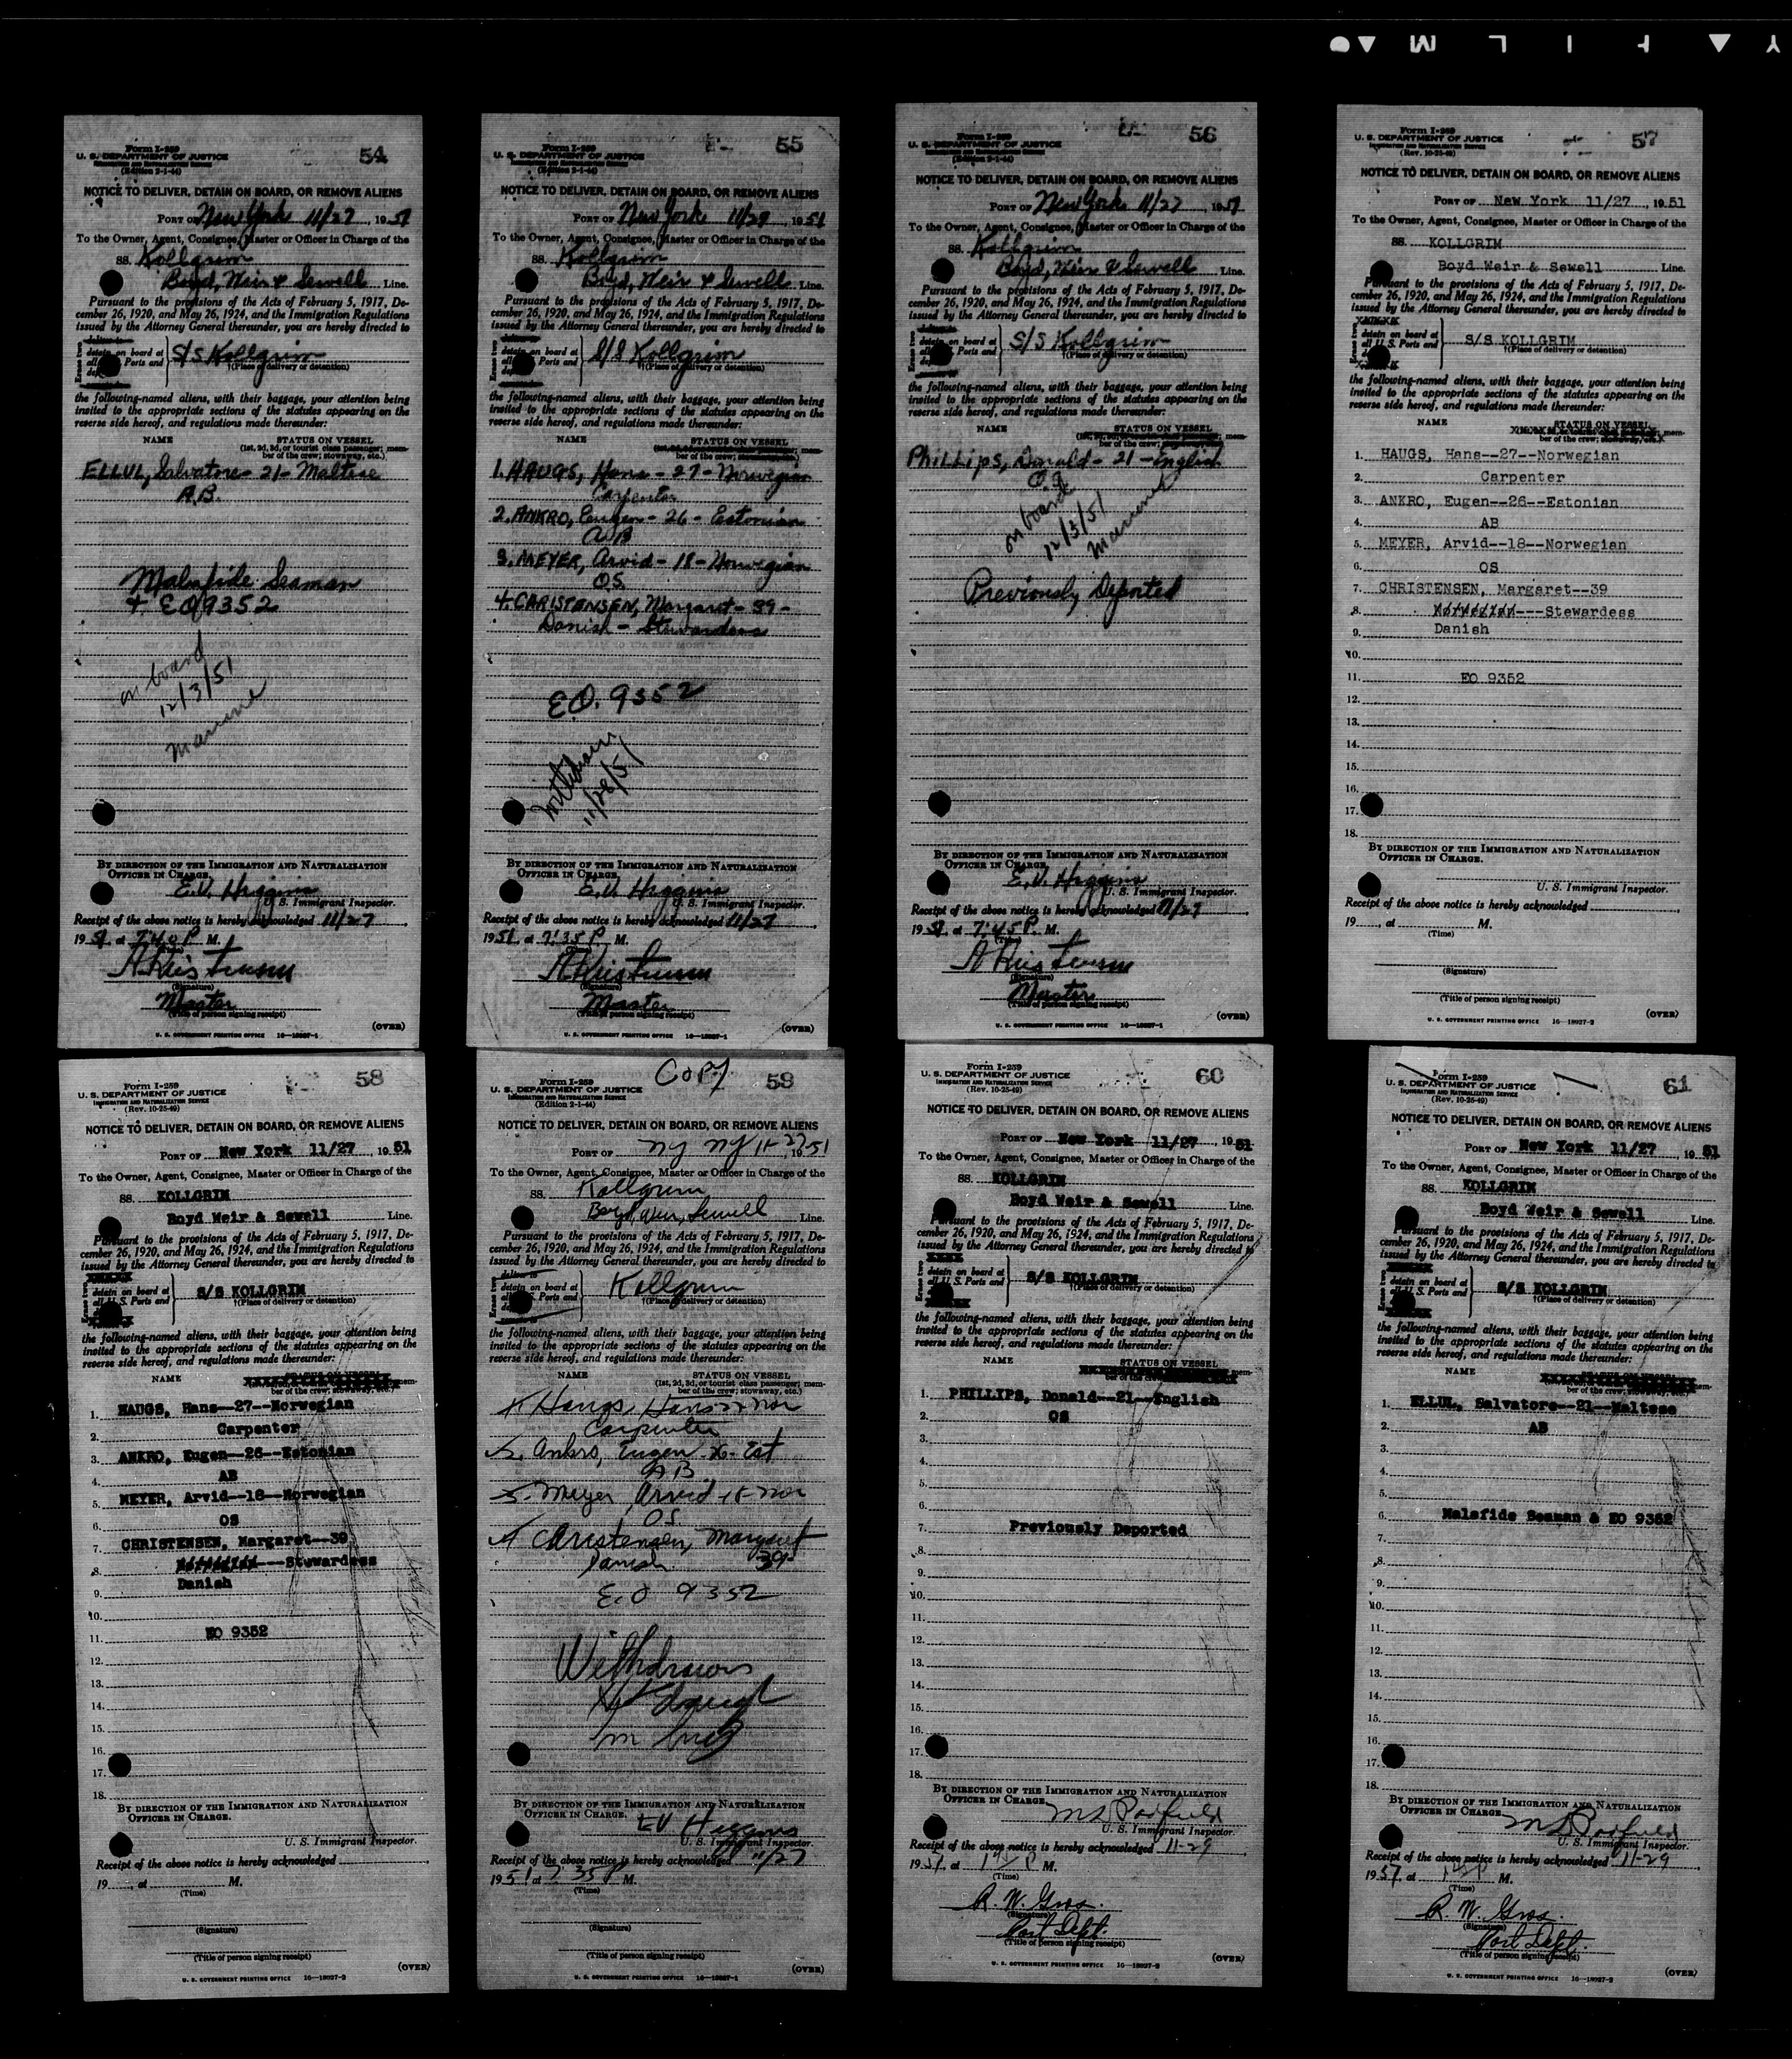 Form I-259
U. S. DEPARTMENT OF JUSTICE
IMMIGRATION AND NATURALIZATION SERVICE
(Edition 2-1-44)
54
NOTICE TO DELIVER, DETAIN ON BOARD, OR REMOVE ALIENS
PORT OF New York 11/27, 1951
To the Owner, Agent, Consignee, Master or Officer in Charge of the
SS. Kollgrim
Boyd, Weir & Sewell Line.
Pursuant to the provisions of the Acts of February 5, 1917, De-
cember 26, 1920, and May 26, 1924, and the Immigration Regulations
issued by the Attorney General thereunder, you are hereby directed to
detain on board at
all U. S. Ports and
S/S Kollgrim
†(Place of delivery or detention)
the following-named aliens, with their baggage, your attention being
invited to the appropriate sections of the statutes appearing on the
reverse side hereof, and regulations made thereunder:
NAME STATUS ON VESSEL
(1st, 2d, 3d, or tourist class passenger; mem-
ber of the crew; stowaway, etc.)
ELLUL, Salvatore - 21 - Maltese
A.B.
Malafide Seaman
& EO 9352
on board
12/3/51
BY DIRECTION OF THE IMMIGRATION AND NATURALIZATION
OFFICER IN CHARGE.
E.V. Higgins
U. S. Immigrant Inspector.
Receipt of the above notice is hereby acknowledged 11/27
1951, at 7:40 P. M.
(Time)
(Signature)
Master
(Title of person signing receipt)
(OVER)
U. S. GOVERNMENT PRINTING OFFICE 16—18027-1
Form I-259
U. S. DEPARTMENT OF JUSTICE
IMMIGRATION AND NATURALIZATION SERVICE
(Edition 2-1-44)
55
NOTICE TO DELIVER, DETAIN ON BOARD, OR REMOVE ALIENS
PORT OF New York 11/27, 1951
To the Owner, Agent, Consignee, Master or Officer in Charge of the
SS. Kollgrim
Boyd, Weir & Sewell Line.
Pursuant to the provisions of the Acts of February 5, 1917, De-
cember 26, 1920, and May 26, 1924, and the Immigration Regulations
issued by the Attorney General thereunder, you are hereby directed to
detain on board at
all U. S. Ports and
S/S Kollgrim
†(Place of delivery or detention)
the following-named aliens, with their baggage, your attention being
invited to the appropriate sections of the statutes appearing on the
reverse side hereof, and regulations made thereunder:
NAME STATUS ON VESSEL
ber of the crew;
1. HAUGS, Hans - 27 - Norwegian
Carpenter
2. ANKRO, Eugen - 26 - Estonian
A.B
3. MEYER, Arvid - 18 - Norwegian
O.S.
4. CHRISTENSEN, Margaret - 39 -
Danish - Stewardess
E.O. 9352
11/28/51
BY DIRECTION OF THE IMMIGRATION AND NATURALIZATION
OFFICER IN CHARGE.
E.V. Higgins
U. S. Immigrant Inspector.
Receipt of the above notice is hereby acknowledged 11/27
1951, at 7:35 P. M.
(Signature)
Master
(Title of person signing receipt)
(OVER)
U. S. GOVERNMENT PRINTING OFFICE 16—18027-1
Form I-259
U. S. DEPARTMENT OF JUSTICE
IMMIGRATION AND NATURALIZATION SERVICE
(Edition 2-1-44)
56
NOTICE TO DELIVER, DETAIN ON BOARD, OR REMOVE ALIENS
PORT OF New York 11/27, 1951
To the Owner, Agent, Consignee, Master or Officer in Charge of the
SS. Kollgrim
Boyd, Weir & Sewell Line.
Pursuant to the provisions of the Acts of February 5, 1917, De-
cember 26, 1920, and May 26, 1924, and the Immigration Regulations
issued by the Attorney General thereunder, you are hereby directed to
detain on board at
all U. S. Ports and
S/S Kollgrim
†(Place of delivery or detention)
the following-named aliens, with their baggage, your attention being
invited to the appropriate sections of the statutes appearing on the
reverse side hereof, and regulations made thereunder:
NAME STATUS ON VESSEL
mem-
ber of the crew;
Phillips, Donald - 21 - English
O.S
on board
12/3/51
Previously Deported
BY DIRECTION OF THE IMMIGRATION AND NATURALIZATION
OFFICER IN CHARGE.
E.V. Higgins
U. S. Immigrant Inspector.
Receipt of the above notice is hereby acknowledged 11/27
1951, at 7:45 P. M.
(Time)
(Signature)
Master
(Title of person signing receipt)
(OVER)
U. S. GOVERNMENT PRINTING OFFICE 16—18027-1
Form I-259
U. S. DEPARTMENT OF JUSTICE
IMMIGRATION AND NATURALIZATION SERVICE
(Rev. 10-25-49)
57
NOTICE TO DELIVER, DETAIN ON BOARD, OR REMOVE ALIENS
PORT OF New York 11/27, 1951
To the Owner, Agent, Consignee, Master or Officer in Charge of the
SS. KOLLGRIM
Boyd Weir & Sewell Line.
Pursuant to the provisions of the Acts of February 5, 1917, De-
cember 26, 1920, and May 26, 1924, and the Immigration Regulations
issued by the Attorney General thereunder, you are hereby directed to
detain on board at
all U. S. Ports and
S/S KOLLGRIM
†(Place of delivery or detention)
the following-named aliens, with their baggage, your attention being
invited to the appropriate sections of the statutes appearing on the
reverse side hereof, and regulations made thereunder:
NAME STATUS ON VESSEL
mem-
ber of the crew;
1. HAUGS, Hans--27--Norwegian
2. Carpenter
3. ANKRO, Eugen--26--Estonian
4. AB
5. MEYER, Arvid--18--Norwegian
6. OS
7. CHRISTENSEN, Margaret--39
8. ---Stewardess
9. Danish
10.
11. EO 9352
12.
13.
14.
15.
16.
17.
18.
BY DIRECTION OF THE IMMIGRATION AND NATURALIZATION
OFFICER IN CHARGE.
U. S. Immigrant Inspector.
Receipt of the above notice is hereby acknowledged
19, at M.
(Time)
(Signature)
(Title of person signing receipt)
(OVER)
U. S. GOVERNMENT PRINTING OFFICE 16—18027-2
Form I-259
U. S. DEPARTMENT OF JUSTICE
IMMIGRATION AND NATURALIZATION SERVICE
(Rev. 10-25-49)
58
NOTICE TO DELIVER, DETAIN ON BOARD, OR REMOVE ALIENS
PORT OF New York 11/27 1951
To the Owner, Agent, Consignee, Master or Officer in Charge of the
SS. KOLLGRIM
Boyd Weir & Sewell Line.
Pursuant to the provisions of the Acts of February 5, 1917, De-
cember 26, 1920, and May 26, 1924, and the Immigration Regulations
issued by the Attorney General thereunder, you are hereby directed to
detain on board at
all U. S. Ports and
S/S KOLLGRIM
†(Place of delivery or detention)
the following-named aliens, with their baggage, your attention being
invited to the appropriate sections of the statutes appearing on the
reverse side hereof, and regulations made thereunder:
NAME STATUS ON VESSEL
mem-
ber of the crew;
1. HAUGS, Hans--27--Norwegian
2. Carpenter
3. ANKRO, Eugen--26--Estonian
4. AB
5. MEYER, Arvid--18--Norwegian
6. OS
7. CHRISTENSEN, Margaret--39
8. ---Stewardess
9. Danish
10.
11. EO 9352
12.
13.
14.
15.
16.
17.
18.
BY DIRECTION OF THE IMMIGRATION AND NATURALIZATION
OFFICER IN CHARGE.
U. S. Immigrant Inspector.
Receipt of the above notice is hereby acknowledged
19, at M.
(Time)
(Signature)
(Title of person signing receipt)
(OVER)
U. S. GOVERNMENT PRINTING OFFICE 16—18027-2
Copy
Form I-259
U. S. DEPARTMENT OF JUSTICE
IMMIGRATION AND NATURALIZATION SERVICE
(Edition 2-1-44)
59
NOTICE TO DELIVER, DETAIN ON BOARD, OR REMOVE ALIENS
PORT OF NY NY 11-27, 1951
To the Owner, Agent, Consignee, Master or Officer in Charge of the
SS. Kollgrim
Boyd, Weir, Sewell Line.
Pursuant to the provisions of the Acts of February 5, 1917, De-
cember 26, 1920, and May 26, 1924, and the Immigration Regulations
issued by the Attorney General thereunder, you are hereby directed to
detain on board at
all U. S. Ports and
Kollgrim
†(Place of delivery or detention)
the following-named aliens, with their baggage, your attention being
invited to the appropriate sections of the statutes appearing on the
reverse side hereof, and regulations made thereunder:
NAME STATUS ON VESSEL
(1st, 2d, 3d, or tourist class passenger; mem-
ber of the crew; stowaway, etc.)
Haugs, Hans 27 nor
Carpenter
Ankro, Eugen - 26 - Est
AB
Meyer, Arvid - 18 - nor
OS
Christensen, Margaret
Danish 39
E.O 9352
Withdrawn
BY DIRECTION OF THE IMMIGRATION AND NATURALIZATION
OFFICER IN CHARGE.
EV Higgins
U. S. Immigrant Inspector.
Receipt of the above notice is hereby acknowledged 11/27
1951 at 7 35 P M.
(Time)
(Signature)
(Title of person signing receipt)
(OVER)
U. S. GOVERNMENT PRINTING OFFICE 16—18027-1
Form I-259
U. S. DEPARTMENT OF JUSTICE
IMMIGRATION AND NATURALIZATION SERVICE
(Rev. 10-25-49)
60
NOTICE TO DELIVER, DETAIN ON BOARD, OR REMOVE ALIENS
PORT OF New York 11/27, 1951
To the Owner, Agent, Consignee, Master or Officer in Charge of the
SS. KOLLGRIM
Boyd Weir & Sewell Line.
Pursuant to the provisions of the Acts of February 5, 1917, De-
cember 26, 1920, and May 26, 1924, and the Immigration Regulations
issued by the Attorney General thereunder, you are hereby directed to
detain on board at
all U. S. Ports and
S/S KOLLGRIM
†(Place of delivery or detention)
the following-named aliens, with their baggage, your attention being
invited to the appropriate sections of the statutes appearing on the
reverse side hereof, and regulations made thereunder:
NAME STATUS ON VESSEL
mem-
ber of the crew; stowaway, etc.)
1. PHILLIPS, Donald--21--English
2. OS
3.
4.
5.
6.
7. Previously Deported
8.
9.
10.
11.
12.
13.
14.
15.
16.
17.
18.
BY DIRECTION OF THE IMMIGRATION AND NATURALIZATION
OFFICER IN CHARGE.
U. S. Immigrant Inspector.
Receipt of the above notice is hereby acknowledged 11-29
1951, at M.
(Time)
R. W. Gros.
(Signature)
Port Dept.
(Title of person signing receipt)
(OVER)
U. S. GOVERNMENT PRINTING OFFICE 16—18027-2
Form I-259
U. S. DEPARTMENT OF JUSTICE
IMMIGRATION AND NATURALIZATION SERVICE
(Rev. 10-25-49)
61
NOTICE TO DELIVER, DETAIN ON BOARD, OR REMOVE ALIENS
PORT OF New York 11/27, 1951
To the Owner, Agent, Consignee, Master or Officer in Charge of the
SS. KOLLGRIM
Boyd Weir & Sewell Line.
Pursuant to the provisions of the Acts of February 5, 1917, De-
cember 26, 1920, and May 26, 1924, and the Immigration Regulations
issued by the Attorney General thereunder, you are hereby directed to
detain on board at
all U. S. Ports and
S/S KOLLGRIM
†(Place of delivery or detention)
the following-named aliens, with their baggage, your attention being
invited to the appropriate sections of the statutes appearing on the
reverse side hereof, and regulations made thereunder:
NAME STATUS ON VESSEL
mem-
ber of the crew; stowaway, etc.)
1. ELLUL, Salvatore--21--Maltese
2. AB
3.
4.
5.
6. Malafide Seaman & EO 9352
7.
8.
9.
10.
11.
12.
13.
14.
15.
16.
17.
18.
BY DIRECTION OF THE IMMIGRATION AND NATURALIZATION
OFFICER IN CHARGE.
U. S. Immigrant Inspector.
Receipt of the above notice is hereby acknowledged 11-29
1951, at M.
(Time)
R. W. Gros.
(Signature)
Port Dept.
(Title of person signing receipt)
(OVER)
U. S. GOVERNMENT PRINTING OFFICE 16—18027-2